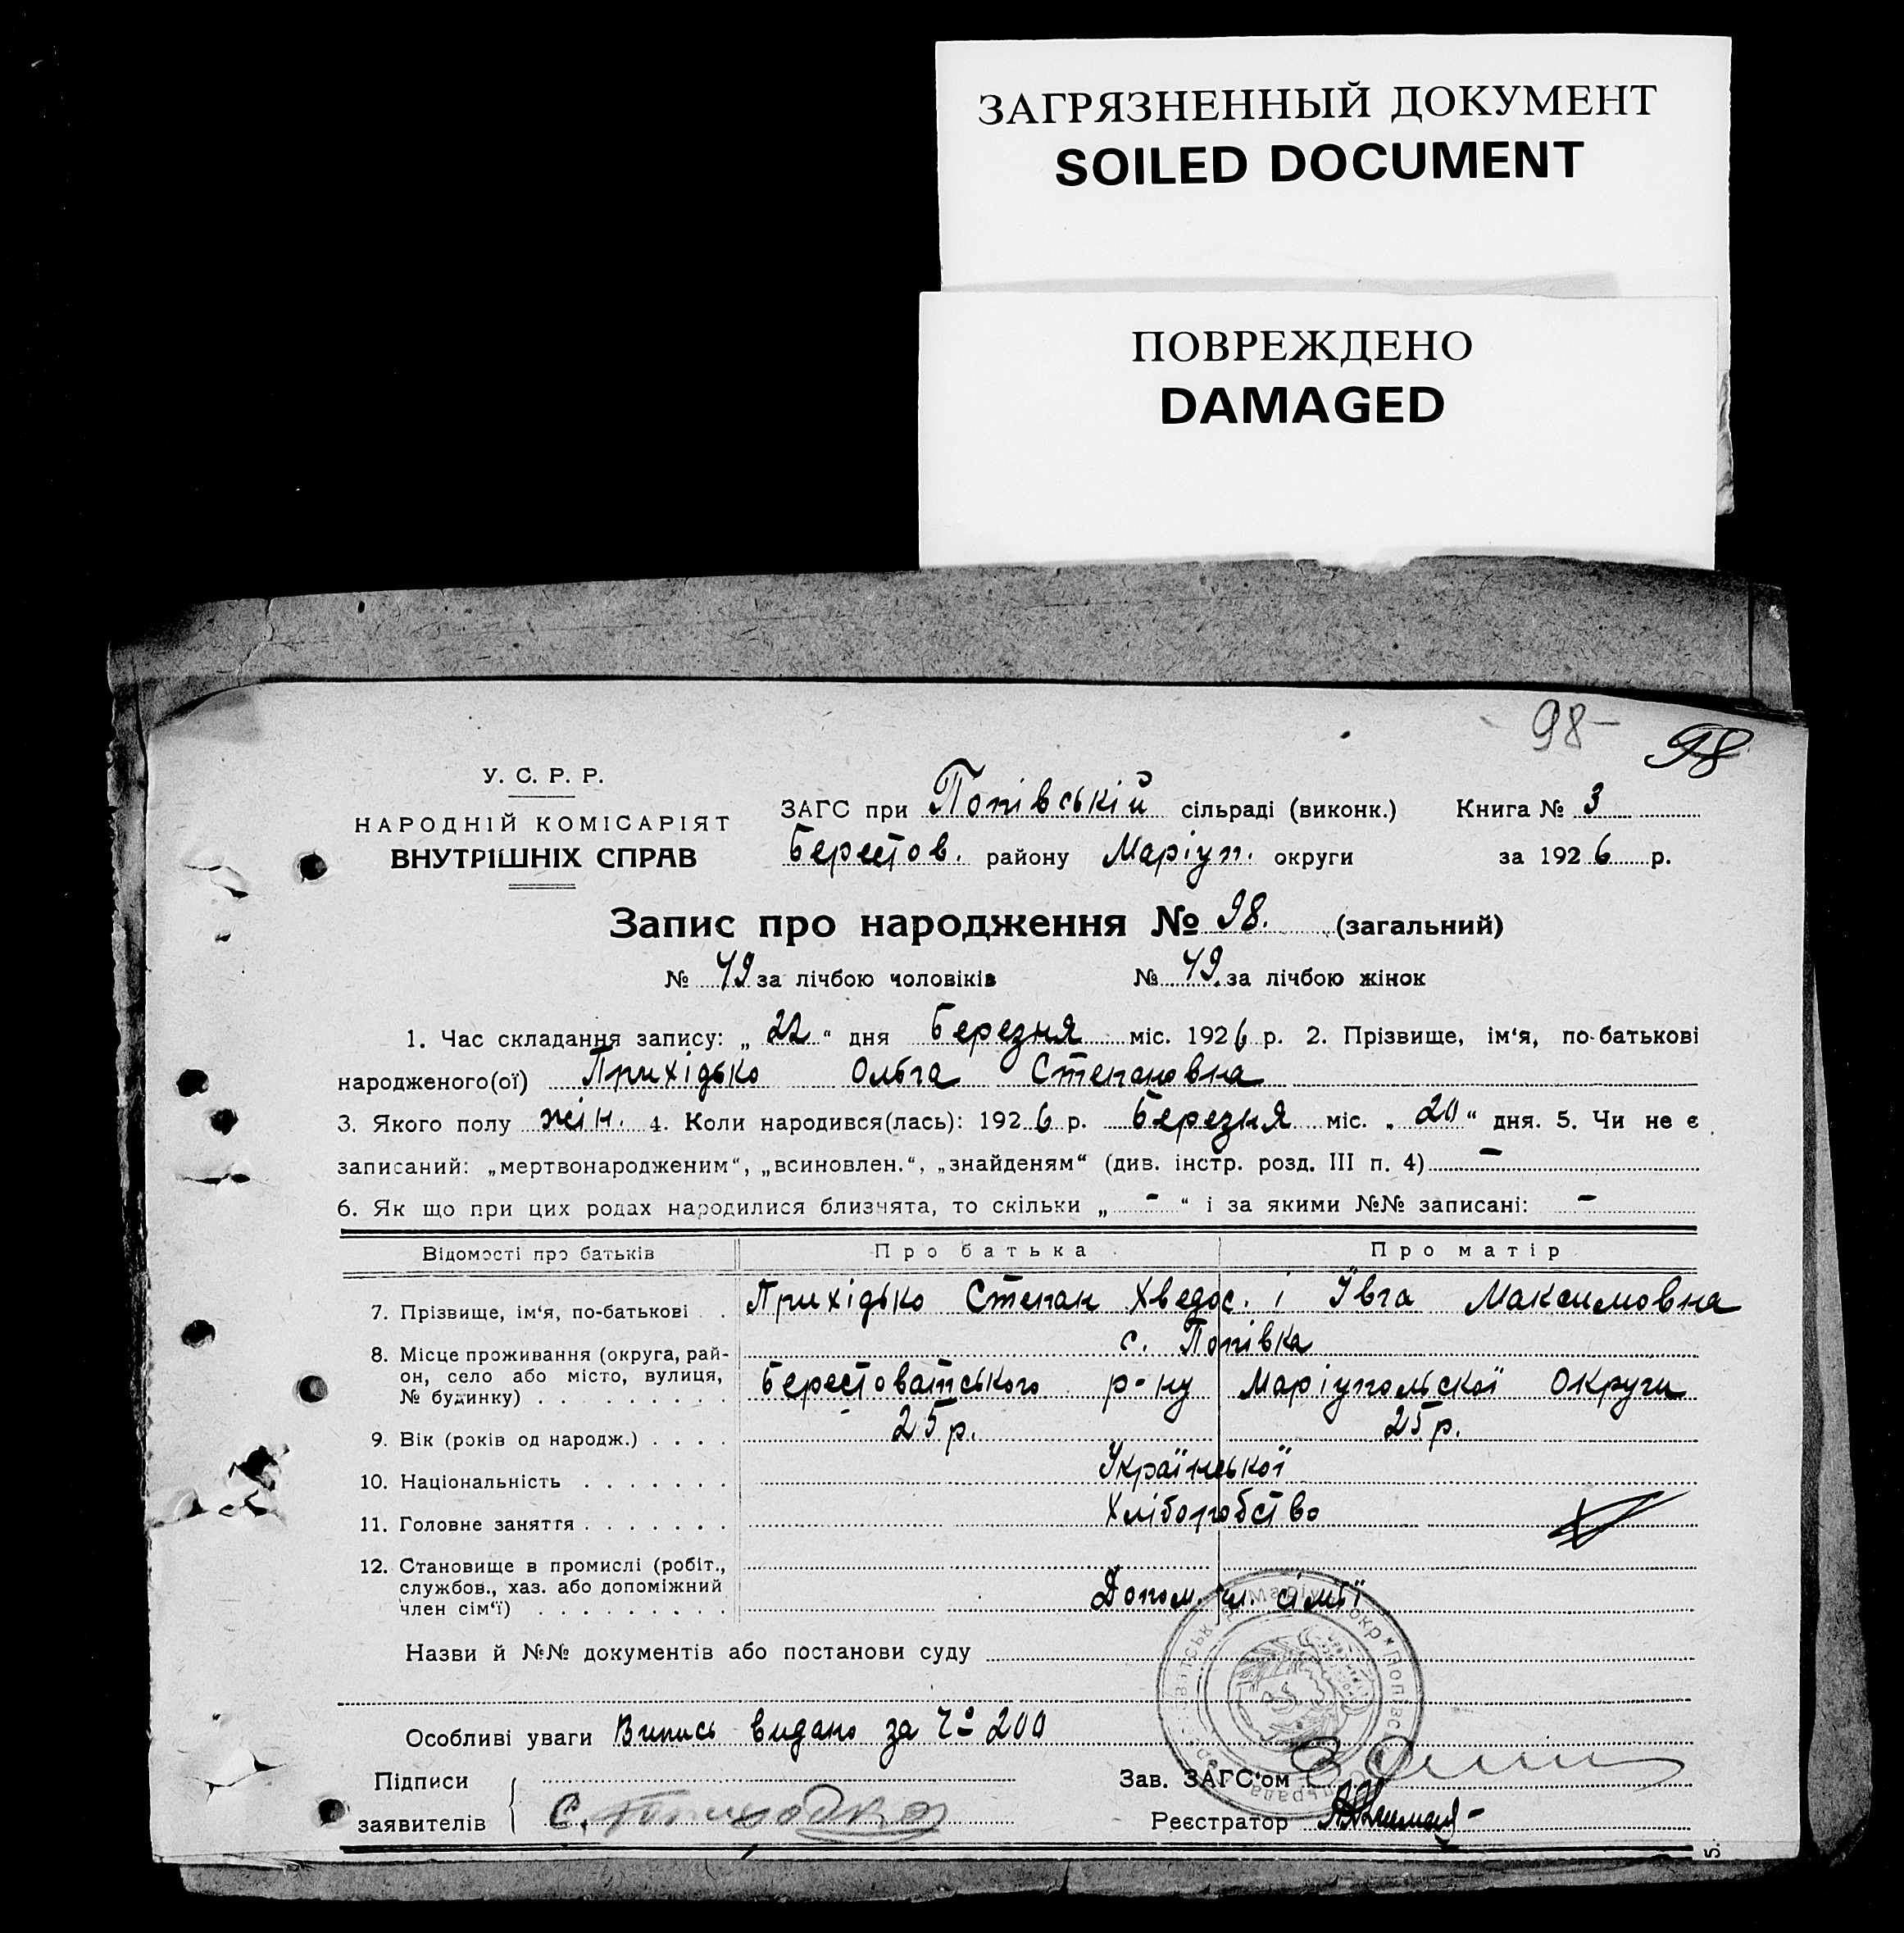 ЗАГРЯЗНЕННЫЙ ДОКУМЕНТ
SOILED DOCUMENT
ПОВРЕЖДЕНО
DAMAGED
98-
98
У. С. Р. Р.
НАРОДНІЙ КОМІСАРІЯТ
ВНУТРІШНІХ СПРАВ
ЗАГС при Попівській сільраді (виконк.) Книга № 3
Берестов. району Маріуп. округи за 1926 р.
Запис про народження № 98. (загальний)
№ 49 за лічбою чоловіків № 49. за лічбою жінок
1. Час складання запису: „ 22 “ дня Березня міс. 1926 р. 2. Прізвище, ім‘я, по-батькові
народженого(ої) Прихідько Ольга Степановна
3. Якого полу жін. 4. Коли народився(лась): 1926 р. Березня міс. „ 20 “ дня. 5. Чи не є
записаний: „мертвонародженим“, „всиновлен.“, „знайденям“ (див. інстр. розд. III п. 4) –
6. Як що при цих родах народилися близнята, то скільки „ - “ і за якими №№ записані: –
Відомості про батьків Про батька Про матір
7. Прізвище, ім‘я, по-батькові . . Прихідько Степан Хведос. і Ївга Максимовна
с. Попівка
8. Місце проживання (округа, рай-
он, село або місто, вулиця, Берестоватського р-ну Маріупольскої Округи
№ будинку) . . . . . . . . .
9. Вік (років од народж.) . . . . 25 р. 25 р.
10. Національність . . . . . . . Української
11. Головне заняття . . . . . . . Хліборобство
12. Становище в промислі (робіт.,
службов., хаз. або допоміжний
член сім‘ї) . . . . . . . . . Допом. чл. сімьї
Назви й №№ документів або постанови суду
Особливі уваги Випись видано за № 200
Підписи
заявителів С. Приходько
Зав. ЗАГС‘ом
Реєстратор
5.